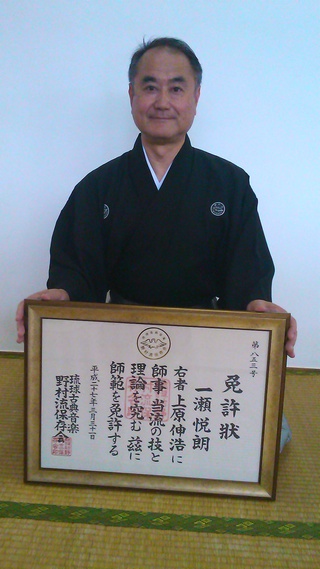 第八五三号
免許状
一瀬悦朗
右者上原伸浩に
師事当流の技と
理論を究む茲に
師範を免許する
平成二十七年三月三十一日
琉球古典音楽
野村流保存会